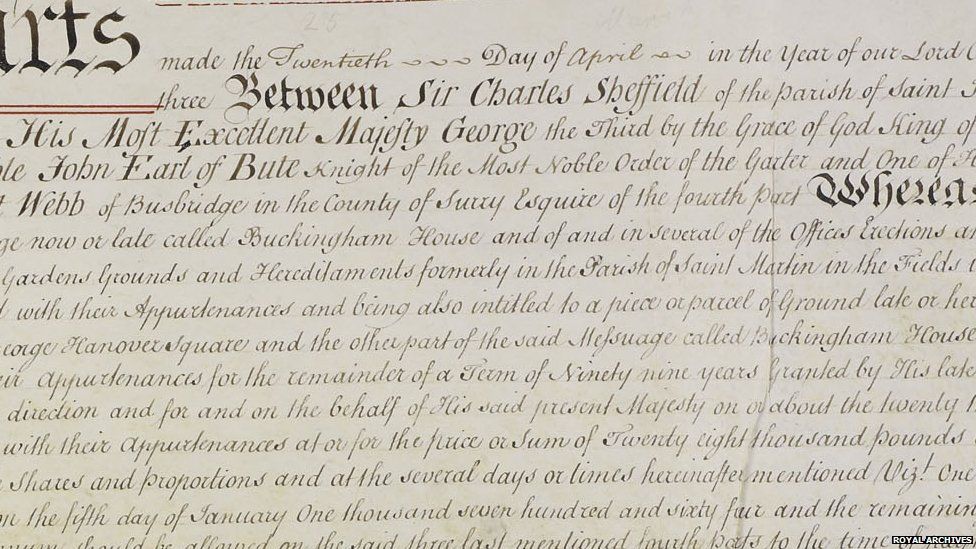 arts
made the Twentieth Day of April in the Year of our Lord
three Between Sir Charles Sheffield of the Parish of Saint
His Most Excellent Majesty George the Third by the Grace of God King of
ble John Earl of Bute Knight of the Most Noble Order of the Garter and One of
Webb of Busbridge in the County of Surry Esquire of the fourth Part Wherea
ge now or late called Buckingham House and of and in several of the Offices Erections an
Gardens Grounds and Hereditaments formerly in the Parish of Saint Martin in the Fields
with their Appurtenances and being also intitled to a piece or parcel of Ground late or her
George Hanover Square and the other part of the said Meſsuage called Buckingham House
eir Appurtenances for the remainder of a Term of Ninety nine years Granted by His late
direction and for and on the behalf of His said present Majesty on or about the twenty
with their Appurtenances at or for the price or Sum of Twenty eight thousand Pounds
Shares and proportions and at the several days or times hereinafter mentioned Vizt. One
on the fifth day of January One thousand seven hundred and sixty four and the remainin
should be allowed on the said three last mentioned fourth Parts to the time of
ROYAL ARCHIVES